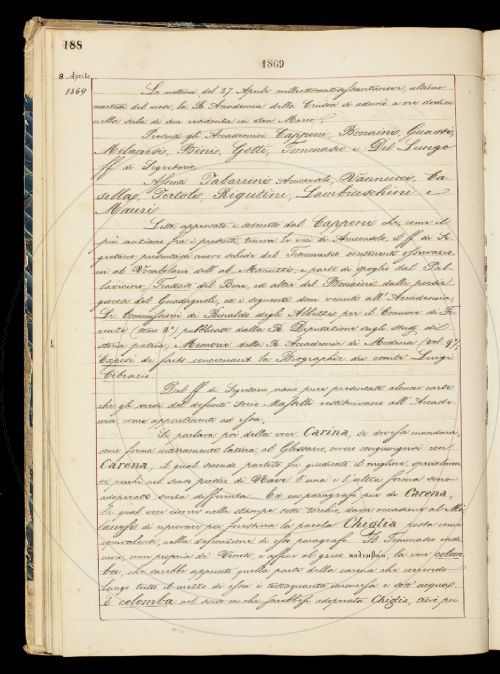 188
1869
8. Aprile
1869
La mattina del 27 Aprile milleottocentosessantanove, ultimo
martedì del mese, la R. Accademia della Crusca si adunò a ore dodici
nella sala di sua residenza in San Marco.
Presenti gli Accademici Capponi, Bonaini, Guasti,
Milanesi, Bini, Gotti, Tommaseo e Del Lungo
ff. di Segretario.
Assenti Tabarrini Arciconsolo, Vannucci, Ca-
sella, Bertoldi, Rigutini, Lambruschini e
Mauri.
Letto approvato e sottoscritto dal Capponi che, come il
più anziano fra i presenti, teneva le veci di Arciconsolo, il ff. di Se-
gretario presentava nuove schede del Tommaseo contenenti osservazio-
ni al Vocabolario dell'ab. Manuzzi, e parte di spoglio del Pal-
lavicino, Trattati del Bene, ed altri del Bonaini dalle poesie
giocose del Guadagnoli, ed i seguenti doni venuti all'Accademia,
Le Commissioni di Rinaldo degli Albizzi per il Comune di Fi-
renze (tomo 2°) pubblicate dalla R. Deputazione sugli studj di
storia patria; Memorie della R. Accademia di Modena (vol. 9°);
Exposé de faits concernant la Biographie du comte Luigi
Cibrario.
Dal ff. di Segretario vano pure presentate alcune carte
che gli eredi del defunto Socio Masselli restituivano all'Accade-
mia, come appartenenti ad essa.
Si parlava poi della voce Carina, se dovesse mandarsi,
come forma meramente latina, al Glossario, ovvero congiungersi con
Carena, il qual secondo partito fu giudicato il migliore, specialmen-
te perchè nel senso poetico di Nave l'una e l'altra forma sono
adoperate senza differenza. Ed un paragrafo pur di Carena,
la qual voce è ora nelle stampe sotto torchio, dava occasione al Mi-
lanesi di riprovare per forestiera la parola Chiglia posta come
equivalente nella definizione di esso paragrafo. Il Tommaseo indi-
cava, come propria de' Veneti e affine al greco, la voce colom-
ba, che sarebbe appunto quella parte della carena che correndo
lungo tutto il mezzo di essa è totalmente immersa e sott'acqua.
E colomba nel senso in che sarebbesi adoperata Chiglia, trovò poi